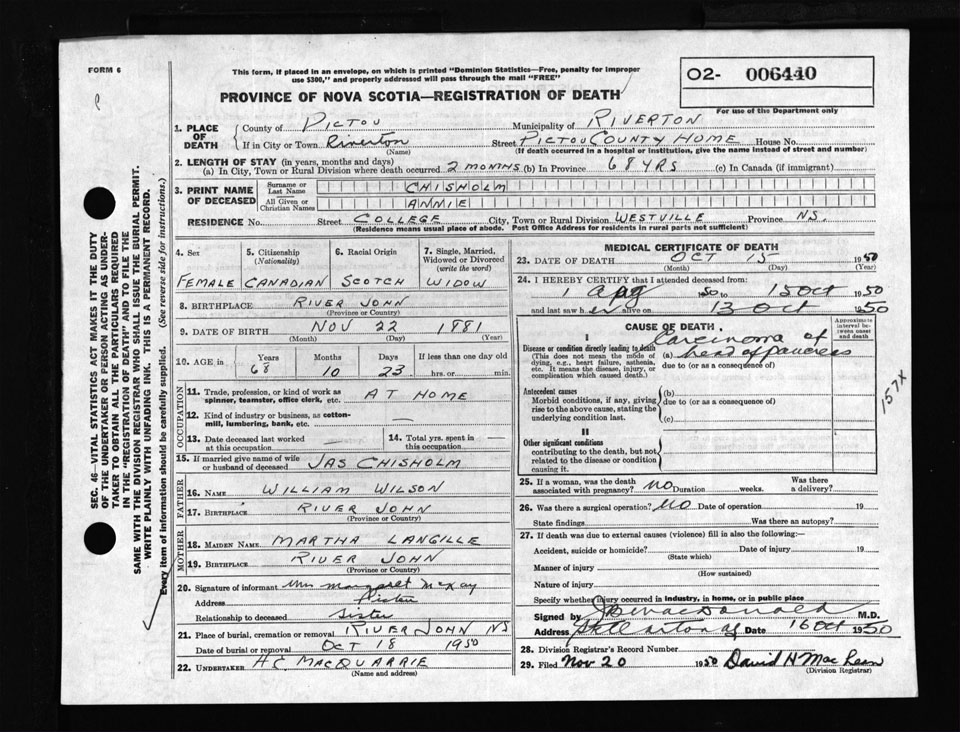 FORM 6
This form, if placed in an envelope, on which is printed "Dominion Statistics—Free, penalty for improper
use $300," and properly addressed will pass through the mail "FREE"
PROVINCE OF NOVA SCOTIA—REGISTRATION OF DEATH
O2- 006440
For use of the Department only
SEC. 46—VITAL STATISTICS ACT MAKES IT THE DUTY
OF THE UNDERTAKER OR PERSON ACTING AS UNDER-
TAKER TO OBTAIN ALL THE PARTICULARS REQUIRED
IN THE "REGISTRATION OF DEATH" AND TO FILE THE
SAME WITH THE DIVISION REGISTRAR WHO SHALL ISSUE THE BURIAL PERMIT.
WRITE PLAINLY WITH UNFADING INK. THIS IS A PERMANENT RECORD.
Every item of information should be carefully supplied. (See reverse side for instructions.)
1. PLACE OF DEATH County of PICTOU Municipality of RIVERTON
If in City or Town Riverton (Name) Street PICTOU COUNTY HOME House No.
(If death occurred in a hospital or institution, give the name instead of street and number)
2. LENGTH OF STAY (in years, months and days)
(a) In City, Town or Rural Division where death occurred 2 MONTHS (b) In Province 68 YRS (c) In Canada (if immigrant)
3. PRINT NAME OF DECEASED Surname or Last Name CHISHOLM
All Given or Christian Names ANNIE
RESIDENCE No. Street COLLEGE City, Town or Rural Division WESTVILLE Province N.S.
(Residence means usual place of abode. Post Office Address for residents in rural parts not sufficient)
4. Sex 5. Citizenship (Nationality) 6. Racial Origin 7. Single, Married, Widowed or Divorced (write the word)
FEMALE CANADIAN SCOTCH WIDOW
8. BIRTHPLACE RIVER JOHN
(Province or Country)
9. DATE OF BIRTH NOV 22 1881
(Month) (Day) (Year)
10. AGE in Years Months Days If less than one day old
68 10 23 hrs. or min.
OCCUPATION
11. Trade, profession, or kind of work as spinner, teamster, office clerk, etc. AT HOME
12. Kind of industry or business, as cotton-mill, lumbering, bank, etc. —
13. Date deceased last worked at this occupation — 14. Total yrs. spent in this occupation —
15. If married give name of wife or husband of deceased JAS CHISHOLM
FATHER
16. NAME WILLIAM WILSON
17. BIRTHPLACE RIVER JOHN
(Province or Country)
MOTHER
18. MAIDEN NAME MARTHA LANGILLE
19. BIRTHPLACE RIVER JOHN
(Province or Country)
20. Signature of informant Mrs Margaret McKay
Address Pictou
Relationship to deceased Sister
21. Place of burial, cremation or removal RIVER JOHN NS
Date of burial or removal OCT 18 1950
22. UNDERTAKER H.C. MACQUARRIE
(Name and address)
MEDICAL CERTIFICATE OF DEATH
23. DATE OF DEATH OCT 15 1950
(Month) (Day) (Year)
24. I HEREBY CERTIFY that I attended deceased from:
1 aug 1950 to 15 Oct 1950
and last saw her alive on 13 Oct 1950
CAUSE OF DEATH
Approximate interval between onset and death
I
Disease or condition directly leading to death (a) Carcinoma of head of pancreas
(This does not mean the mode of dying, e.g., heart failure, asthenia, etc. It means the disease, injury, or complication which caused death.)
due to (or as a consequence of)
157X
Antecedent causes
Morbid conditions, if any, giving rise to the above cause, stating the underlying condition last.
(b)
due to (or as a consequence of)
(c)
II
Other significant conditions
contributing to the death, but not related to the disease or condition causing it.
25. If a woman, was the death associated with pregnancy? NO Duration weeks. Was there a delivery?
26. Was there a surgical operation? NO Date of operation 19
State findings Was there an autopsy?
27. If death was due to external causes (violence) fill in also the following:—
Accident, suicide or homicide? Date of injury 19
(State which)
Manner of injury
(How sustained)
Nature of injury
Specify whether injury occurred in industry, in home, or in public place
Signed by MacDonald M.D.
Address Date 16 Oct 1950
28. Division Registrar's Record Number
29. Filed Nov 20 1950 David H MacLean
(Division Registrar)